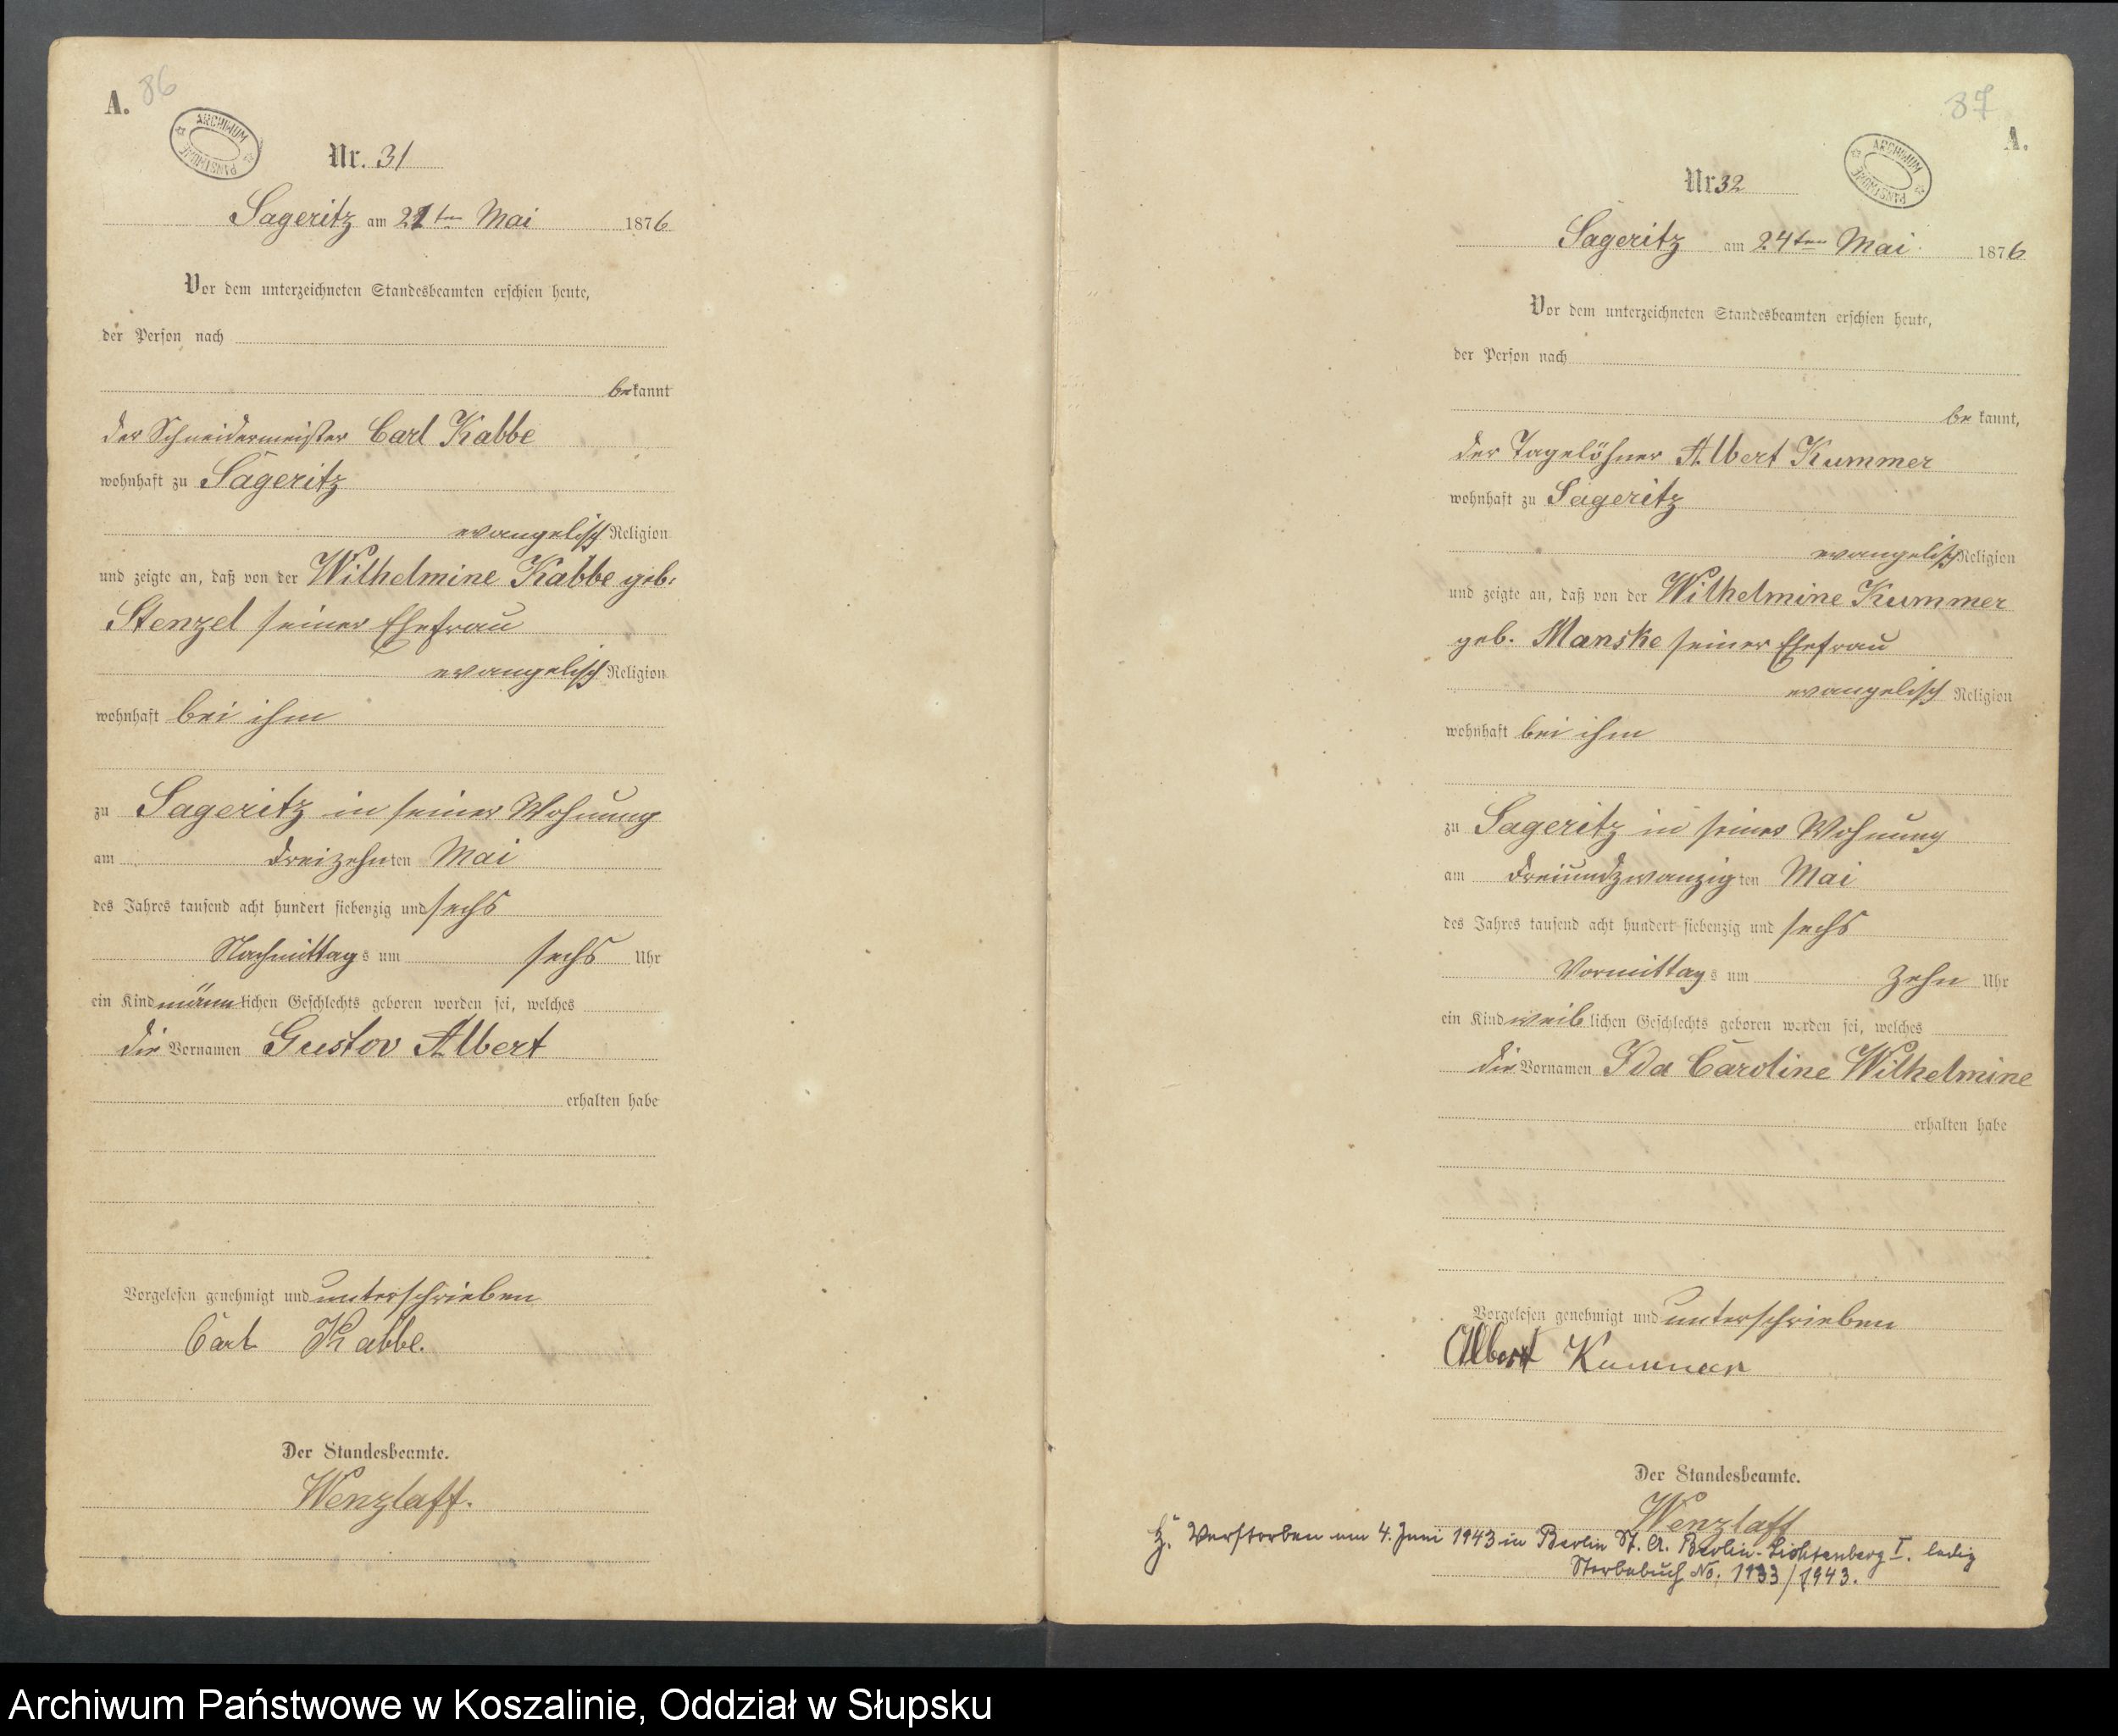 A. 86
ARCHIWUM PAŃSTWOWE
Nr. 31
Sageritz am 21ten Mai 1876
Vor dem unterzeichneten Standesbeamten erschien heute,
der Person nach
bekannt
der Schneidermeister Carl Kabbe
wohnhaft zu Sageritz
evangelisch Religion
und zeigte an, daß von der Wilhelmine Kabbe geb.
Stenzel seiner Ehefrau
evangelisch Religion
wohnhaft bei ihm
zu Sageritz in seiner Wohnung
am dreizehnten Mai
des Jahres tausend acht hundert siebenzig und sechs
Nachmittags um sechs Uhr
ein Kind männlichen Geschlechts geboren worden sei, welches
die Vornamen Gustov Albert
erhalten habe
Vorgelesen genehmigt und unterschrieben
Carl Kabbe.
Der Standesbeamte.
Wenzlaff.
87
A.
ARCHIWUM PAŃSTWOWE
Nr 32
Sageritz am 24ten Mai 1876
Vor dem unterzeichneten Standesbeamten erschien heute,
der Person nach
bekannt,
der Tagelöhner Albert Kummer
wohnhaft zu Sageritz
evangelisch Religion
und zeigte an, daß von der Wilhelmine Kummer
geb. Manske seiner Ehefrau
evangelisch Religion
wohnhaft bei ihm
zu Sageritz in seiner Wohnung
am dreiundzwanzigten Mai
des Jahres tausend acht hundert siebenzig und sechs
Vormittags um zehn Uhr
ein Kind weiblichen Geschlechts geboren worden sei, welches
die Vornamen Ida Caroline Wilhelmine
erhalten habe
Vorgelesen genehmigt und unterschrieben
Albert Kummer
Der Standesbeamte.
Wenzlaff
Verstorben am 4. Juni 1943 in Berlin St. A. Berlin-Lichtenberg I. ledig
Sterbebuch No. 1133/1943.
Archiwum Państwowe w Koszalinie, Oddział w Słupsku